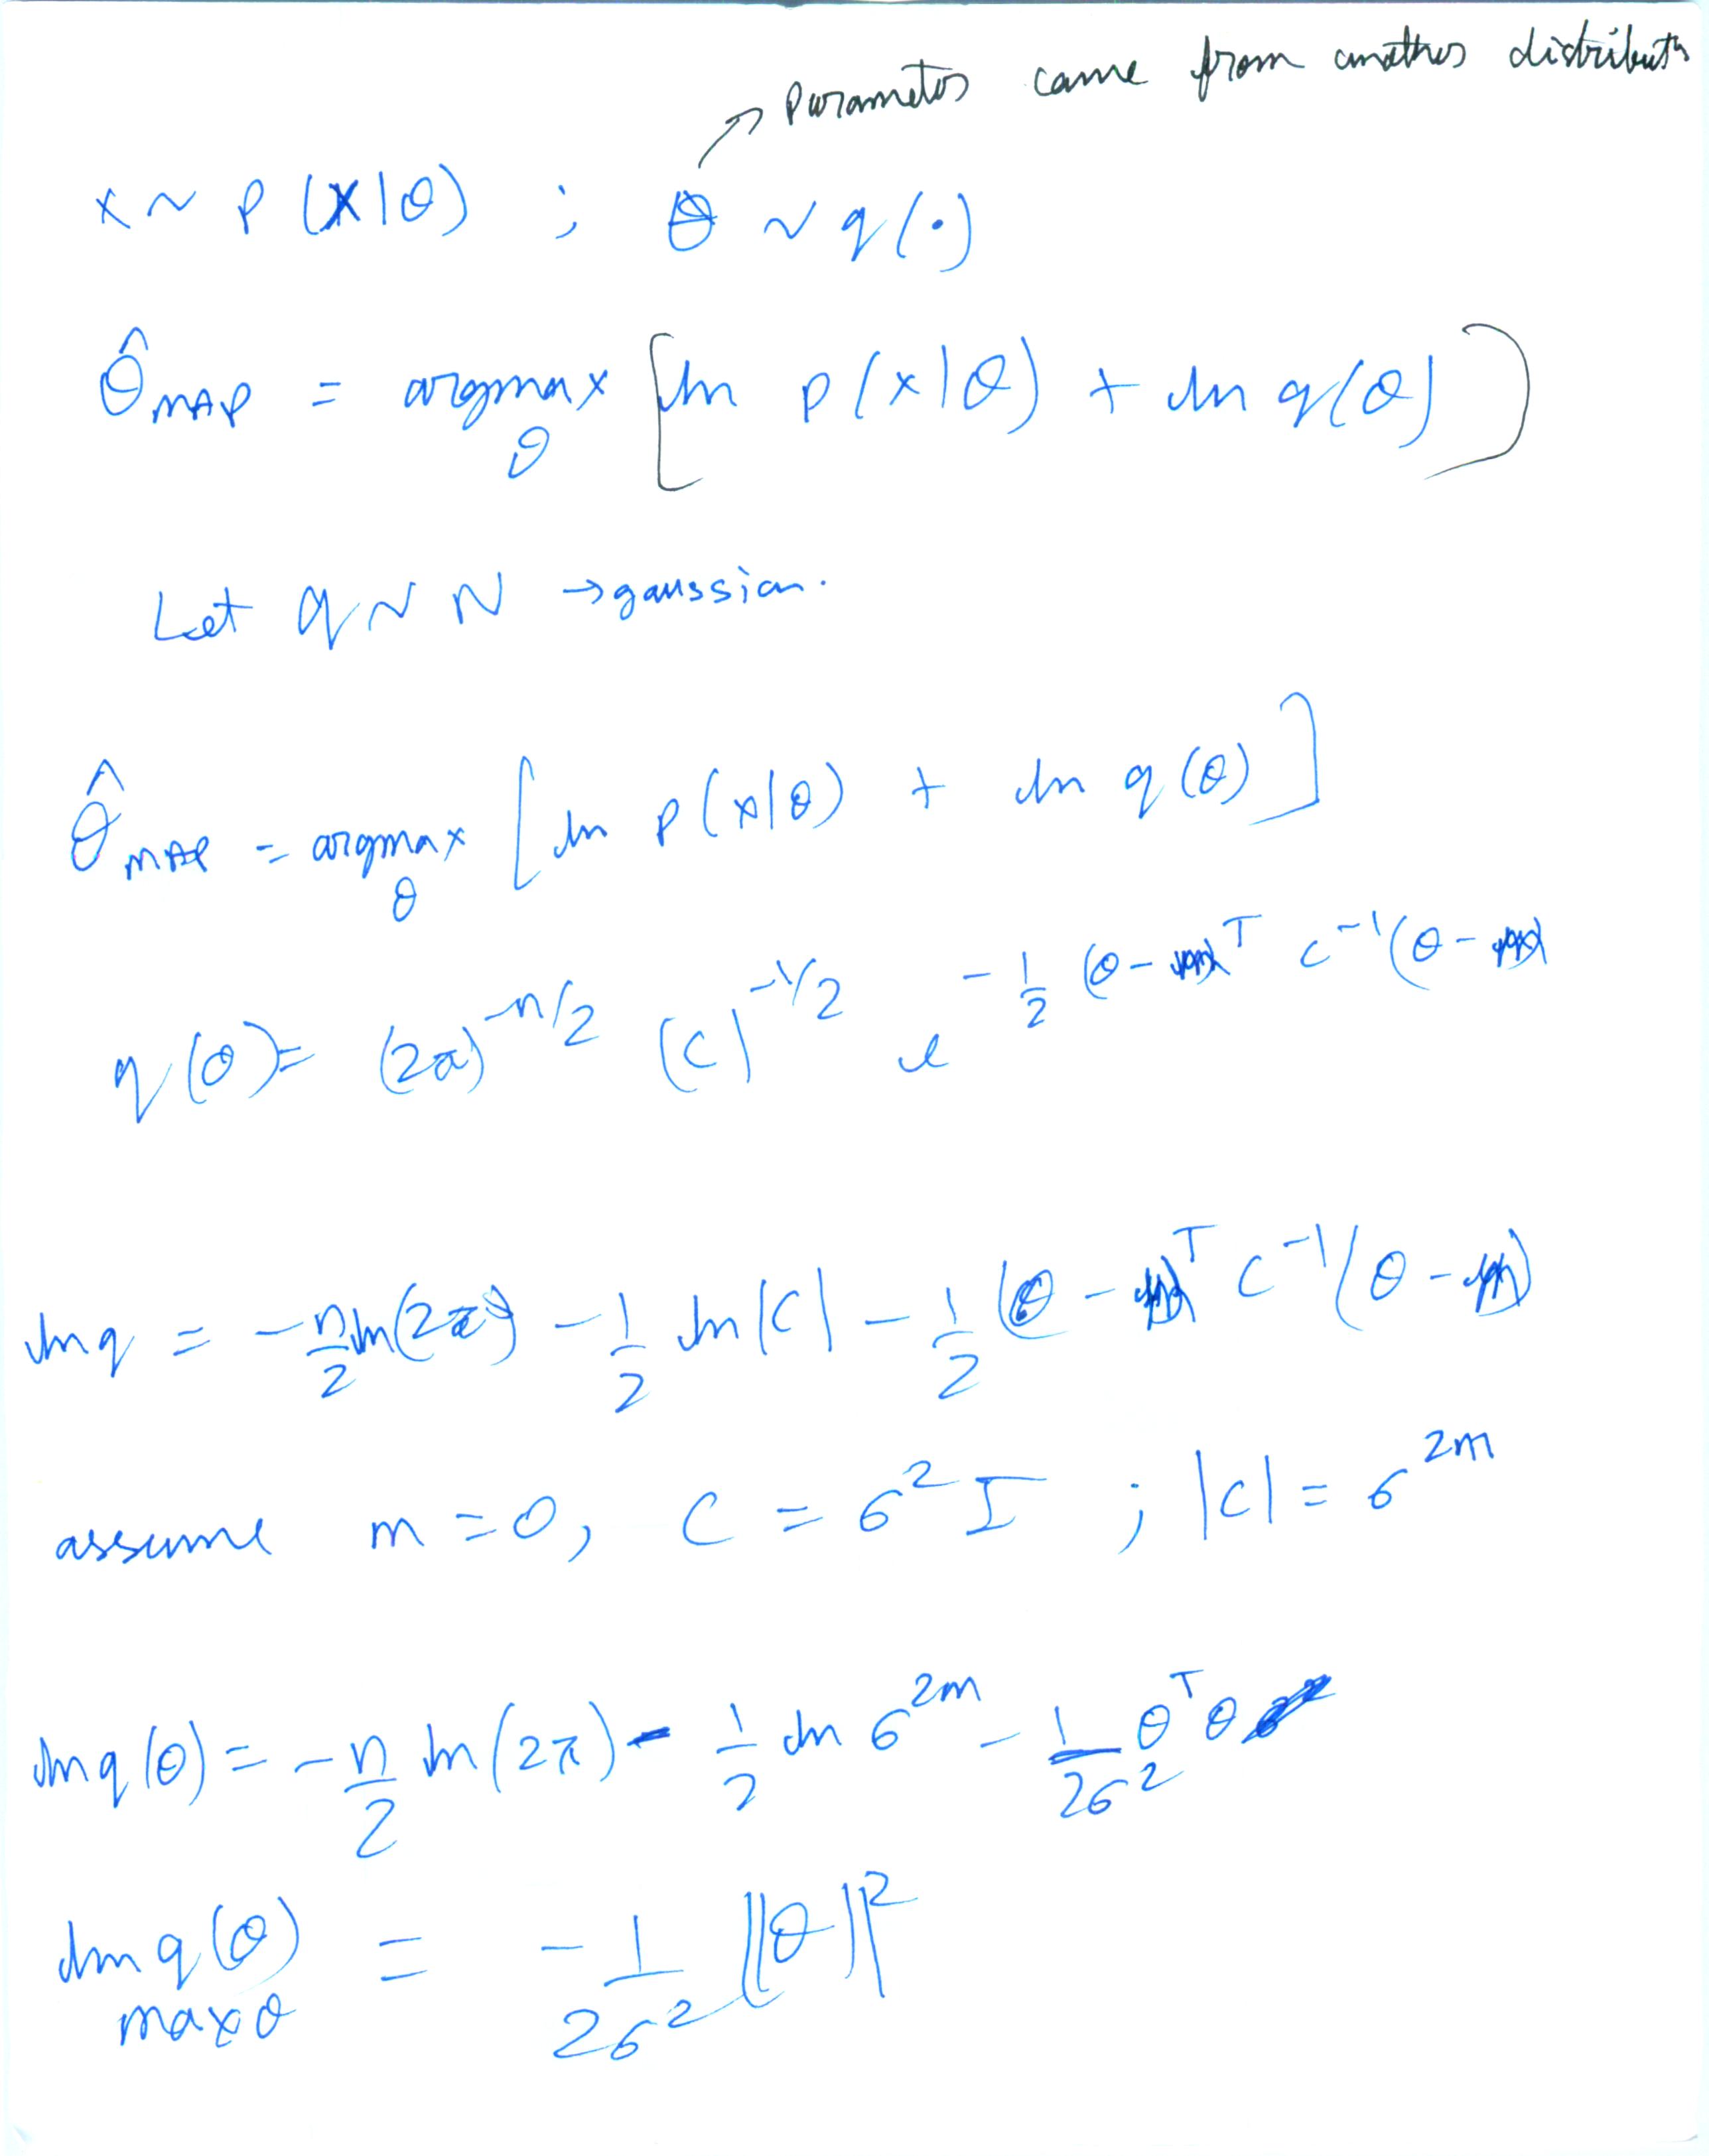 → Parameters came from another distributn
x ~ p(x|θ) ; θ ~ q(·)
θ̂_MAP = argmax_θ [ln p(x|θ) + ln q(θ)]
Let q ~ N → gaussian.
θ̂_MAP = argmax_θ [ln p(x|θ) + ln q(θ)]
q(θ) = (2π)^{-n/2} |C|^{-1/2} e^{-1/2 (θ-m)^T C^{-1} (θ-m)}
ln q = -n/2 ln(2π) - 1/2 ln|C| - 1/2 (θ-m)^T C^{-1} (θ-m)
assume m = 0, C = σ² I ; |C| = σ^{2m}
ln q(θ) = -n/2 ln(2π) - 1/2 ln σ^{2m} - 1/2σ² θ^T θ
ln q(θ) = -1/2σ² ||θ||²
max θ